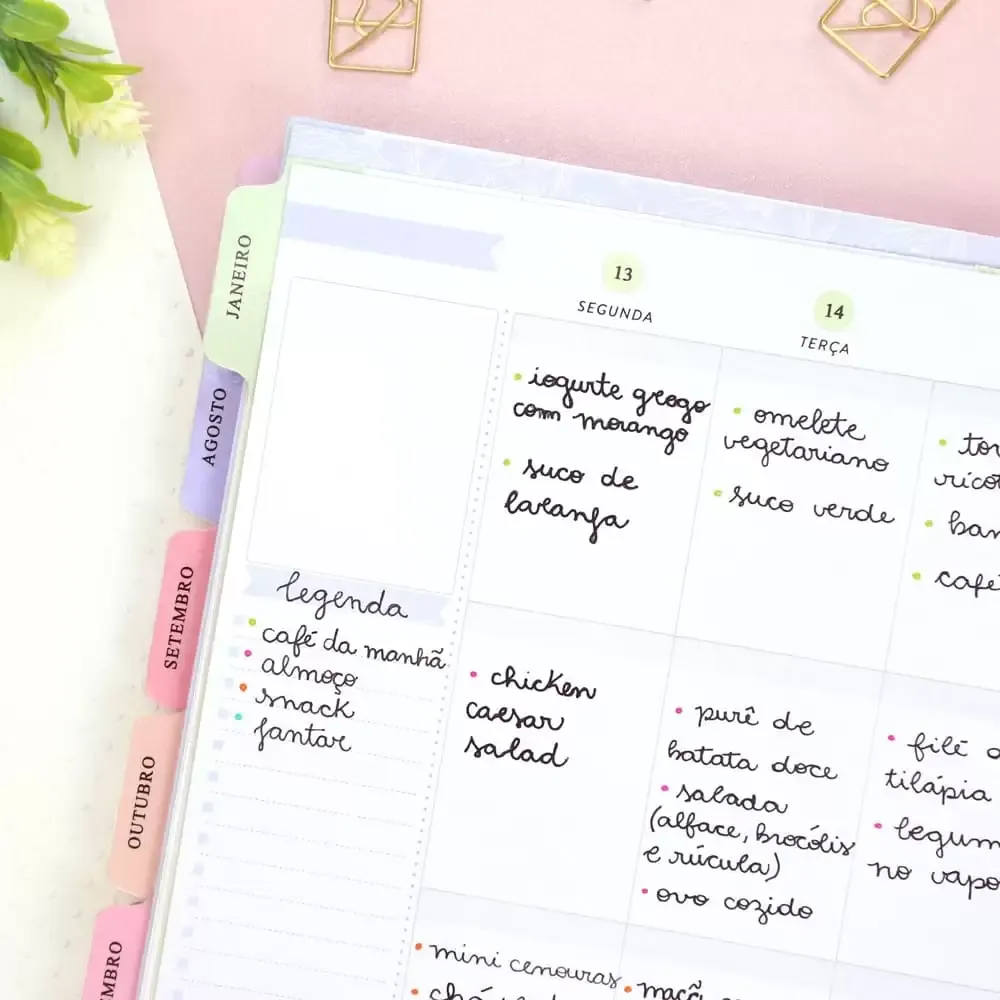 JANEIRO
AGOSTO
SETEMBRO
OUTUBRO
MBRO
13
SEGUNDA
14
TERÇA
legenda
• café da manhã
• almoço
• snack
• jantar
• iogurte grego
com morango
• suco de
laranja
• omelete
vegetariano
• suco verde
• chicken
caesar
salad
• purê de
batata doce
• salada
(alface, brocólis
e rúcula)
• ovo cozido
• filé
tilápia
• legum
no vapo
• café
• mini cenouras
• maçã